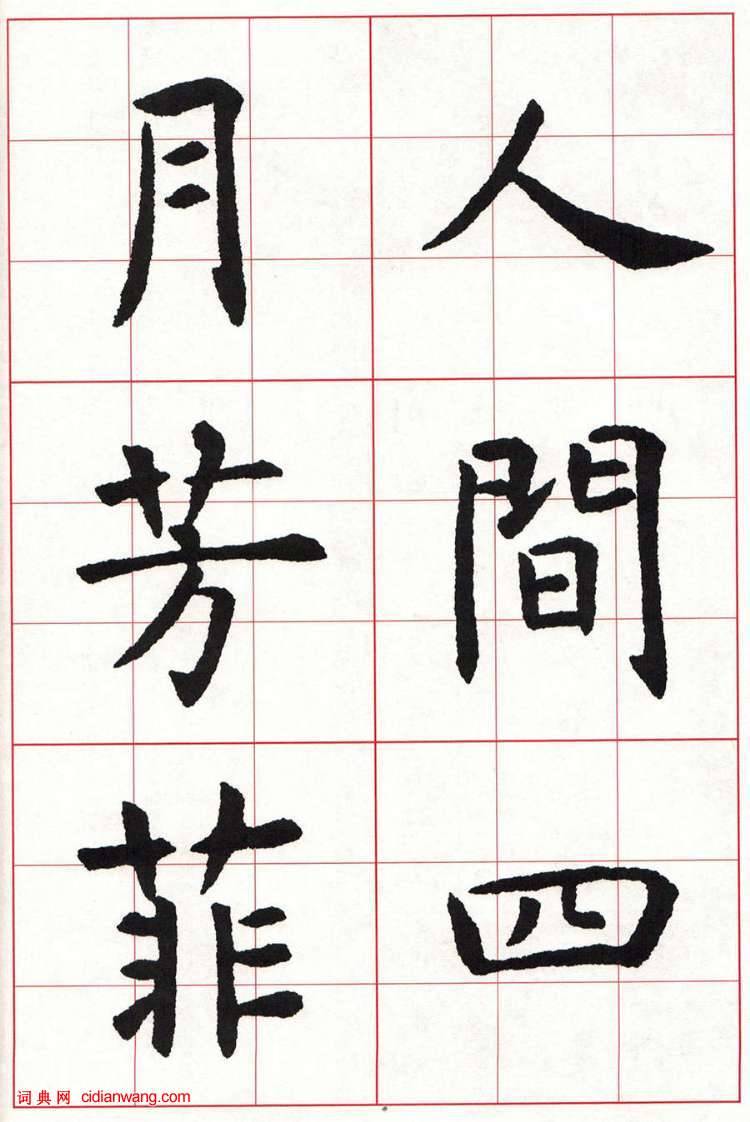 人間四
月芳菲
词典网 cidianwang.com